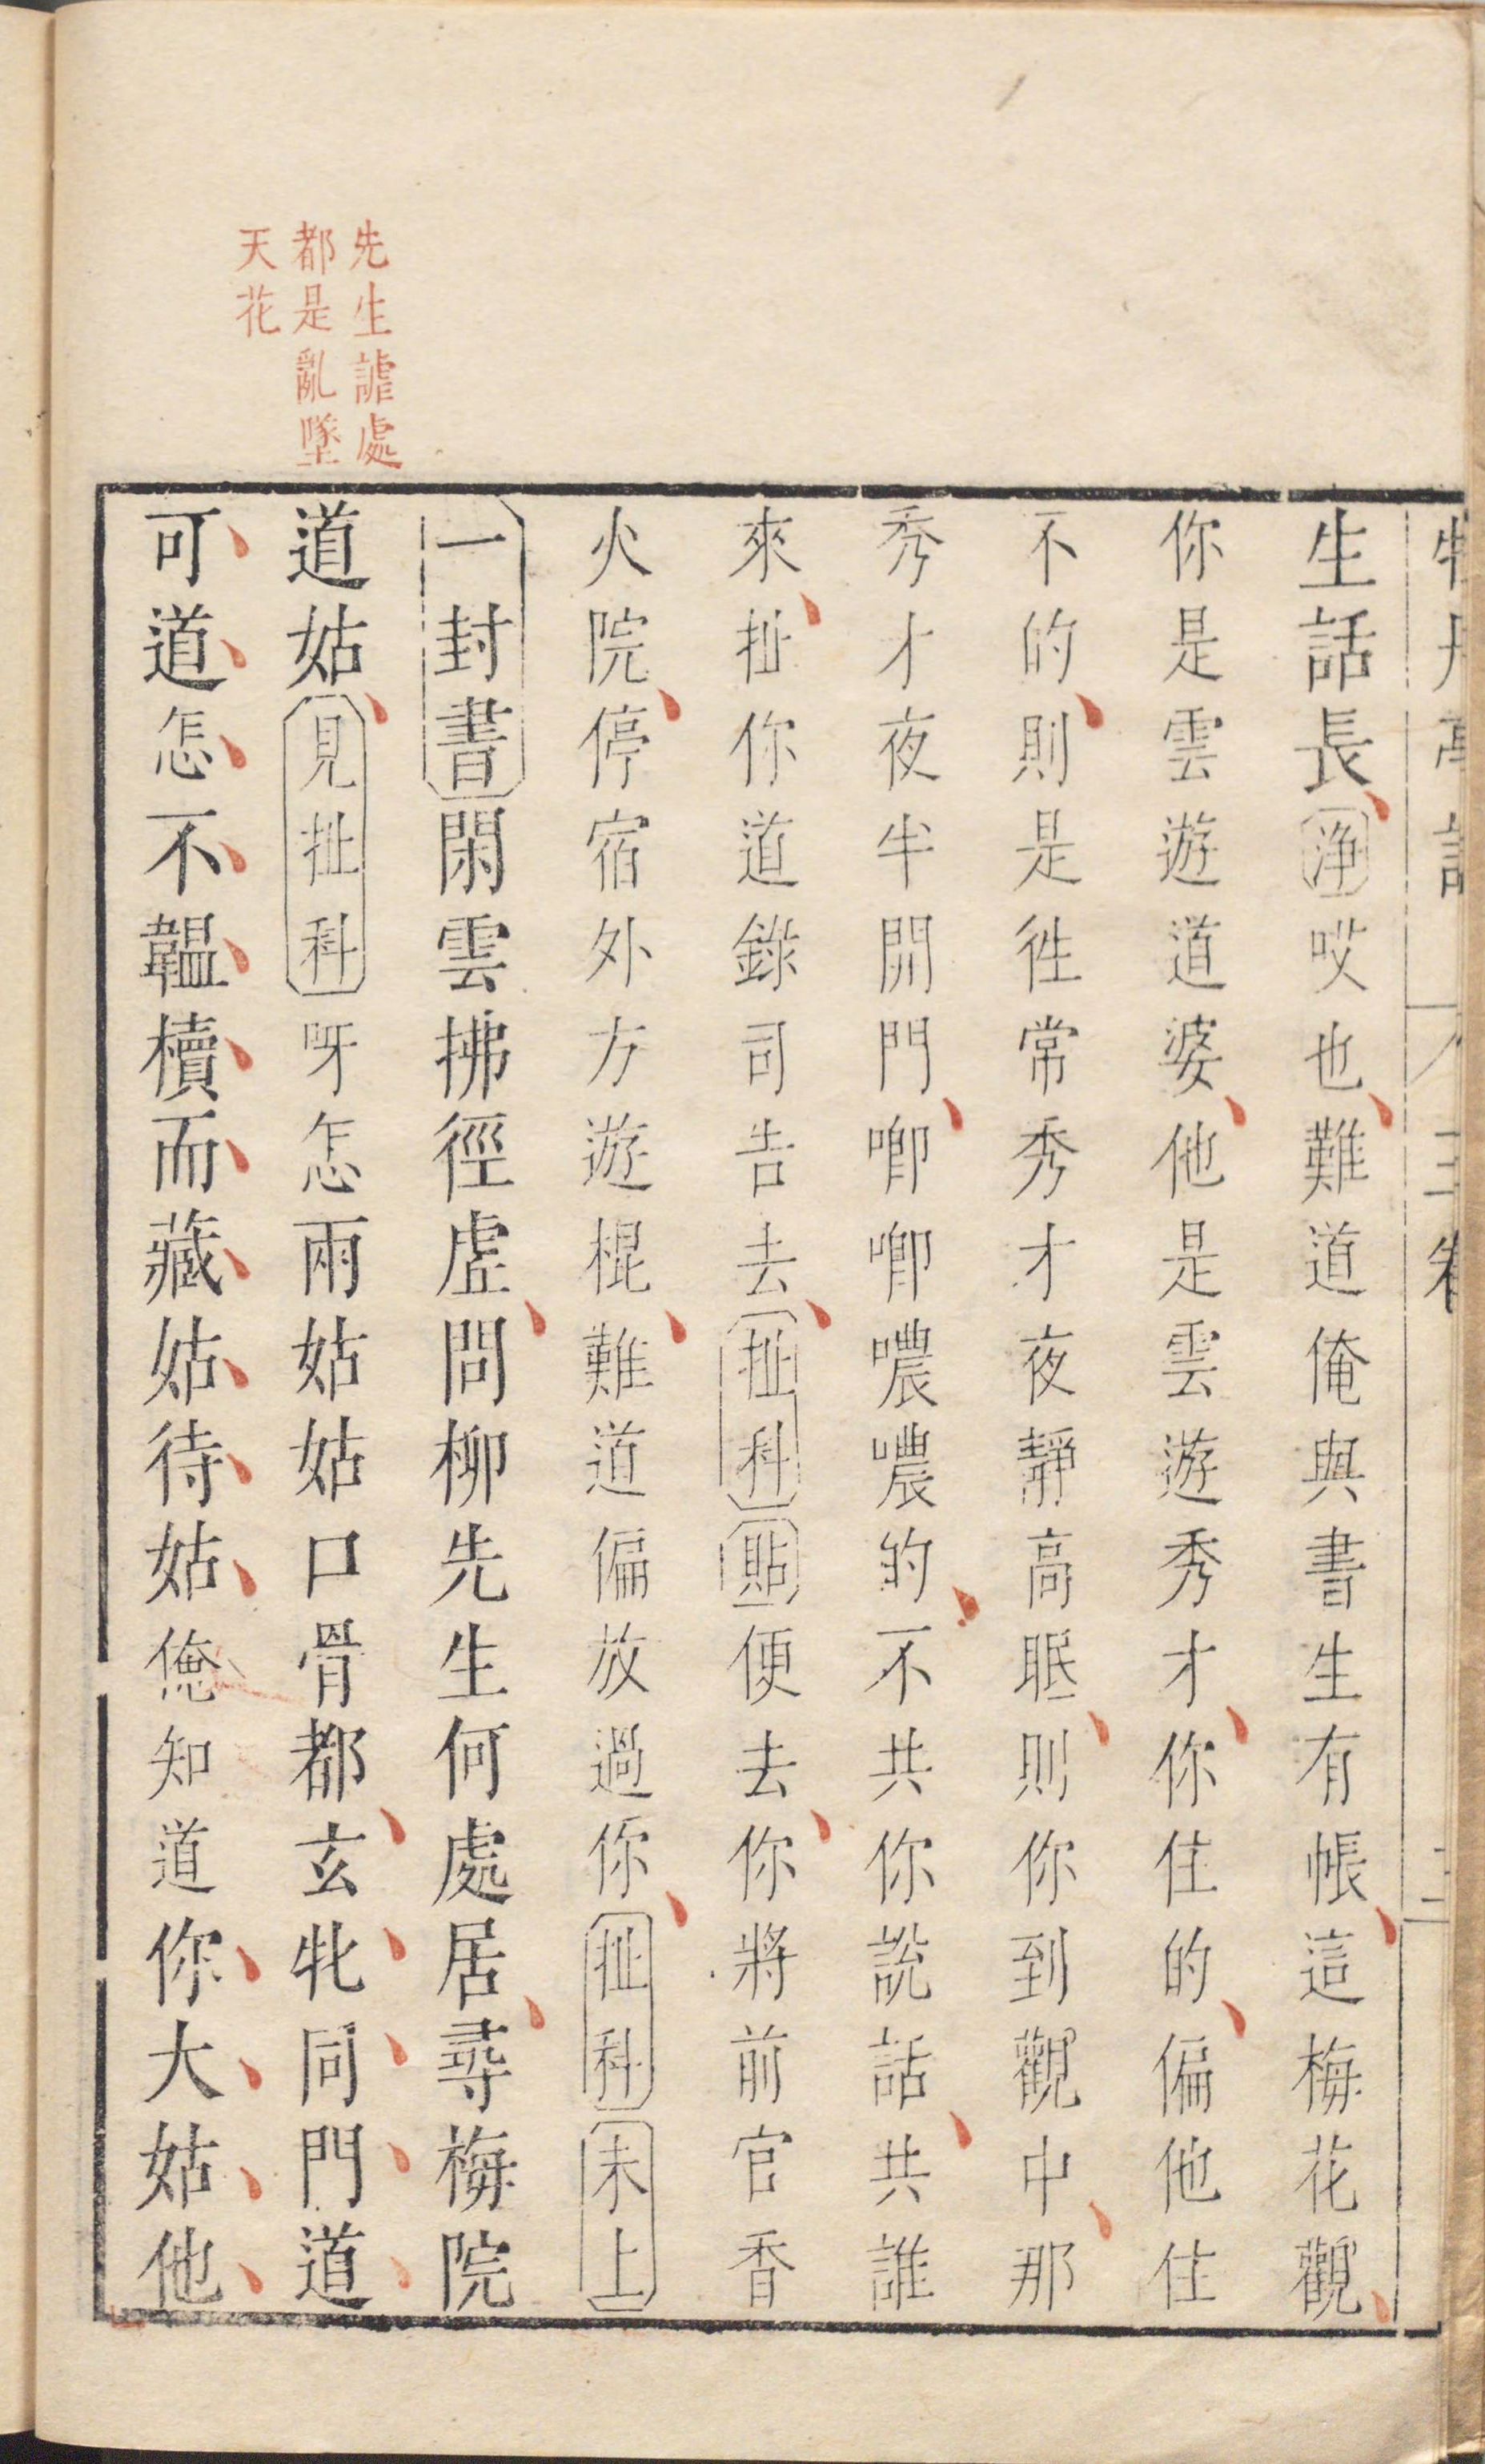 生話長淨哎也難道俺與書生有帳這梅花觀
你是雲遊道婆他是雲遊秀才你住的偏他住
不的則是往常秀才夜靜高眠則你到觀中那
秀才夜半開門唧唧噥噥的不共你說話共誰
來扯你道錄司告去扯科貼便去你將前官香
火院停宿外方遊棍難道偏放過你扯科末上
一封書閑雲拂徑虛問柳先生何處居尋梅院
道姑見扯科呀怎兩姑姑口骨都玄牝同門道
可道怎不韞櫝而藏姑待姑俺知道你大姑他
先生謔處
都是亂墜
天花